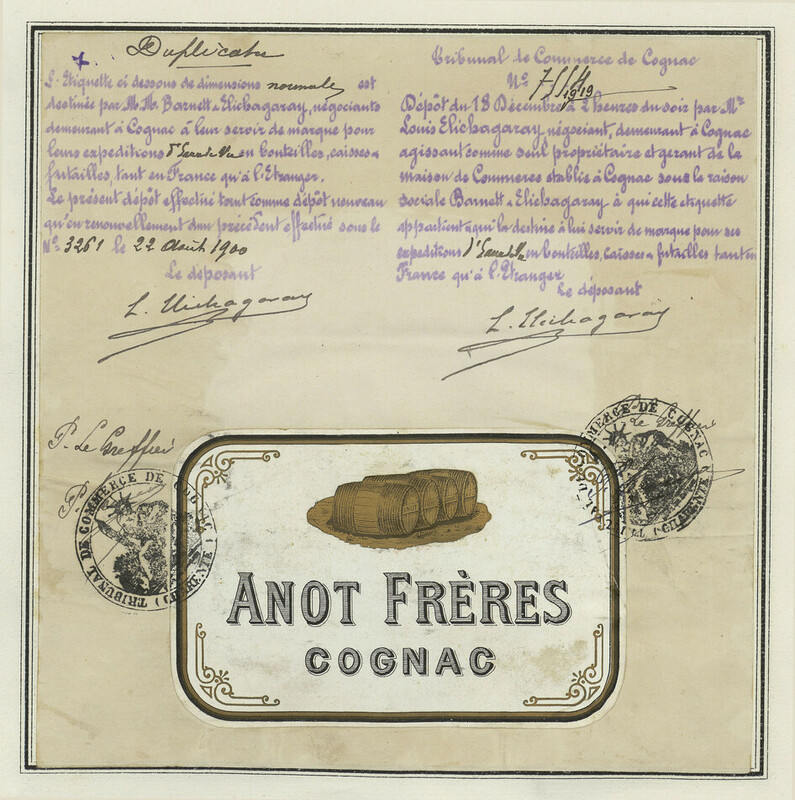 Duplicata
L'Etiquette ci dessous de dimensions normale est
destinée par M.M. Barnett & Elichagaray, négociants
demeurant à Cognac à leur servir de marque pour
leurs expeditions d'Eau de Vie en bouteilles, caisses &
futailles, tant en France qu'à l'Etranger.
Le présent dépôt effectué tout comme dépôt nouveau
qu'en renouvellement d'un précédent effectué sous le
No. 3261 le 22 Août 1900
Le déposant
L. Elichagaray
Tribunal de Commerce de Cognac
No
1919
Dépôt du 18 Décembre à 2 heures du soir par Mr
Louis Elichagaray négociant, demeurant à Cognac
agissant comme seul propriétaire et gerant de la
maison de Commerce etablie à Cognac sous la raison
sociale Barnett & Elichagaray à qui cette etiquette
appartient qui la destine à lui servir de marque pour ses
expeditions d'Eau de Vie en bouteilles, caisses & futailles tant en
France qu'à l'Etranger
Le déposant
L. Elichagaray
P. Le Greffier
P.
TRIBUNAL DE COMMERCE DE COGNAC (CHARENTE)
Le Greffier
TRIBUNAL DE COMMERCE DE COGNAC (CHARENTE)
ANOT FRÈRES
COGNAC